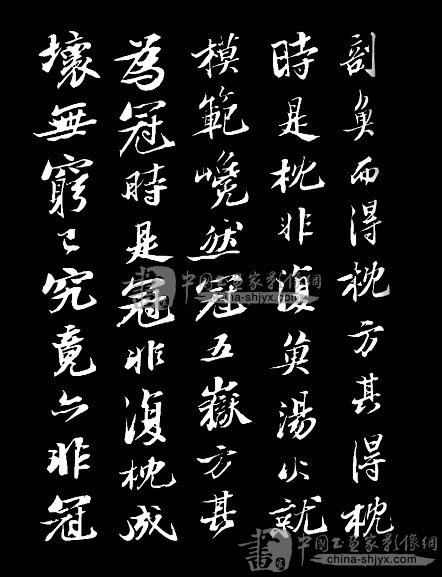 剖魚而得枕方其得枕
時是枕非復魚湯火就
模範巉然冠五嶽方其
為冠時是冠非復枕成
壞無窮已究竟亦非冠
書 中国书画家影像網
china-shjyx.com
書 中国书画家影像網
china-shjyx.com